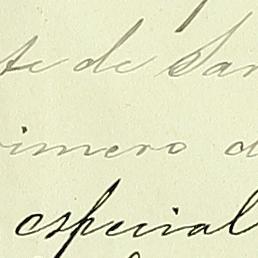 te de San
rimero d
especial